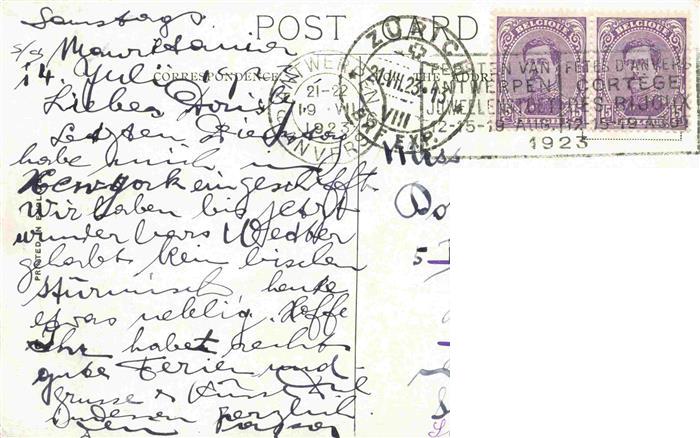 POST CARD
CORRESPONDENCE
THE ADDRESS
PRINTED IN
Samstags.
s/s Mauretania
14. Juli
Liebes
Letzten Dienstag
habe mich in
Newyork eingeschifft
Wir haben bis jetzt
wunderbares Wetter
gehabt kein bischen
stürmisch heute
etwas neblig. Hoffe
Ihr habet recht
gute Ferien und
grüsse &
indessen herzlich
Miss
Do
5
BELGIQUE BELGIË
BELGIQUE BELGIË
ANTWERPEN
21-22
19 VII
1923
ANVERS
ZÜRICH
21.VII.23
VIII
BRF. EXP.
FEESTEN VAN FÊTES D'ANVERS
ANTWERPEN CORTÈGE
JUWEELENSTOET DES BIJOUX
12-15-19 AUG.
1923